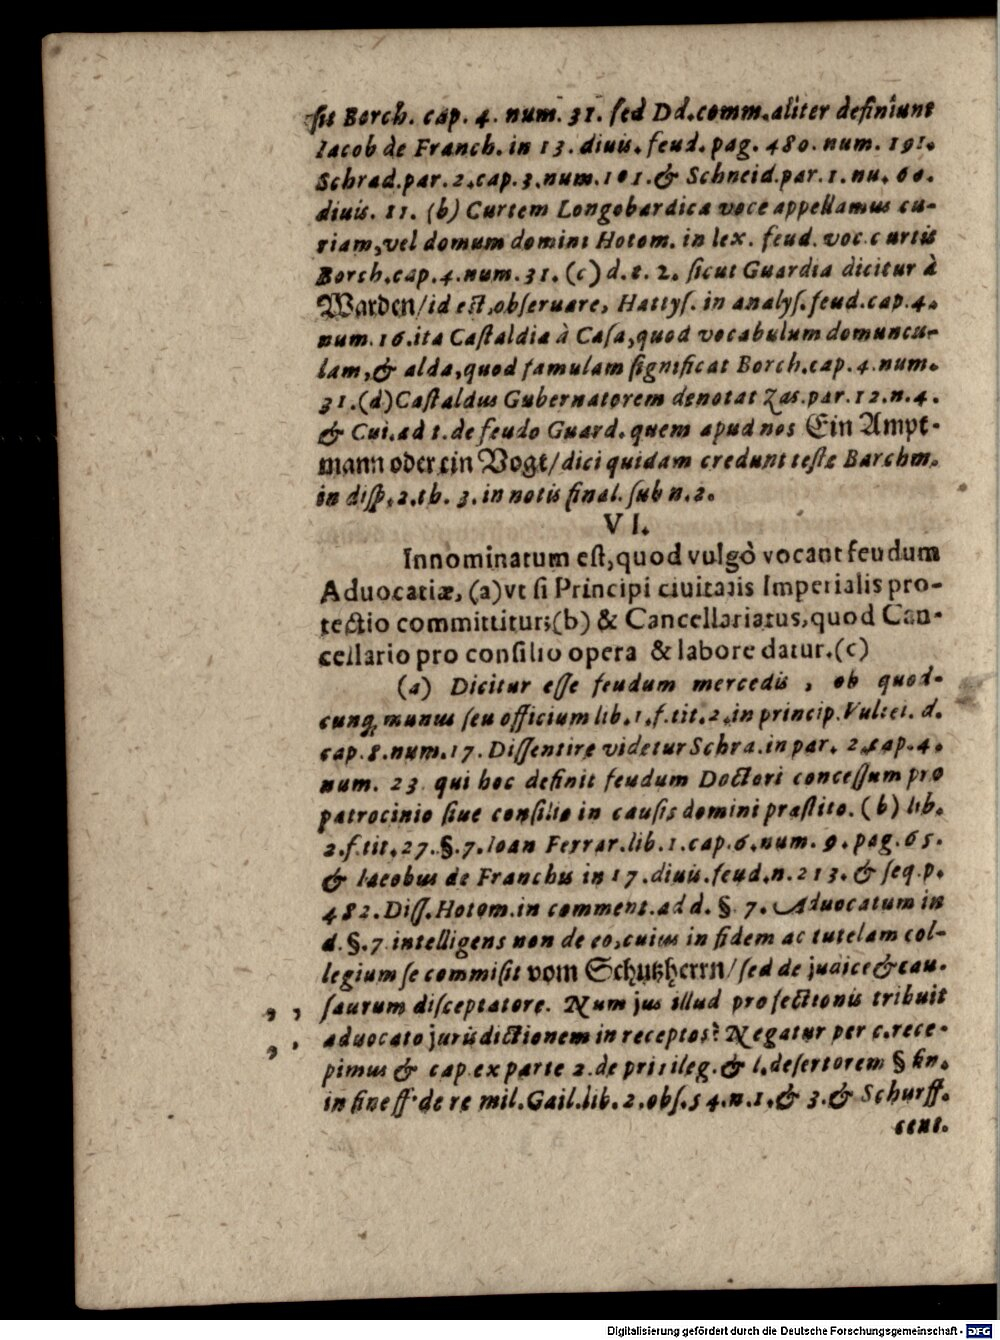 sit Borch. cap. 4. num. 31. sed Dd. comm. aliter definiunt
Iacob de Franch. in 13. diuis. feud. pag. 480. num. 191.
Schrad. par. 2. cap. 3. num. 101. & Schneid. par. 1. nu. 60.
diuis. 11. (b) Curtem Longobardica voce appellamus cu-
riam, vel domum domini Hotom. in lex. feud. voc. curtis
Borch. cap. 4. num. 31. (c) d. t. 2. sicut Guardia dicitur à
Warden/ id est, obseruare, Hattys. in analys. feud. cap. 4.
num. 16. ita Castaldia à Casa, quod vocabulum domuncu-
lam, & alda, quod famulam significat Borch. cap. 4. num.
31. (d) Castaldus Gubernatorem denotat Zas. par. 12. n. 4.
& Cui. ad t. de feudo Guard. quem apud nos Ein Ampt-
mann oder ein Vogt/ dici quidam credunt teste Barchm.
in disp. 2. th. 3. in notis final. sub n. 2.
VI.
Innominatum est, quod vulgò vocant feudum
Aduocatiæ, (a) vt si Principi ciuitatis Imperialis pro-
tectio committitur; (b) & Cancellariatus, quod Can-
cellario pro consilio opera & labore datur. (c)
(a) Dicitur esse feudum mercedis, ob quod-
cunq; munus seu officium lib. 1. f. tit. 2. in princip. Vultei. d.
cap. 8. num. 17. Dissentire videtur Schra. in par. 2. cap. 4.
num. 23. qui hoc definit feudum Doctori concessum pro
patrocinio siue consilio in causis domini præstito. (b) lib.
2. f. tit. 27. §. 7. Ioan Ferrar. lib. 1. cap. 6. num. 9. pag. 65.
& Iacobus de Franchis in 17. diuis. feud. n. 213. & seq. p.
482. Diss. Hotom. in comment. ad d. §. 7. Aduocatum in
d. §. 7 intelligens non de eo, cuius in fidem ac tutelam col-
legium se commisit vom Schutzherrn/ sed de judice & cau-
saurum disceptatore. Num jus illud profectionis tribuit
aduocato jurisdictionem in receptos? Negatur per c. rece-
pimus & cap. ex parte 2. de priuileg. & l. desertorem § fin.
in fine ff. de re mil. Gail. lib. 2. obs. 54. n. 1. & 3. & Schurff.
cent.
Digitalisierung gefördert durch die Deutsche Forschungsgemeinschaft - DFG